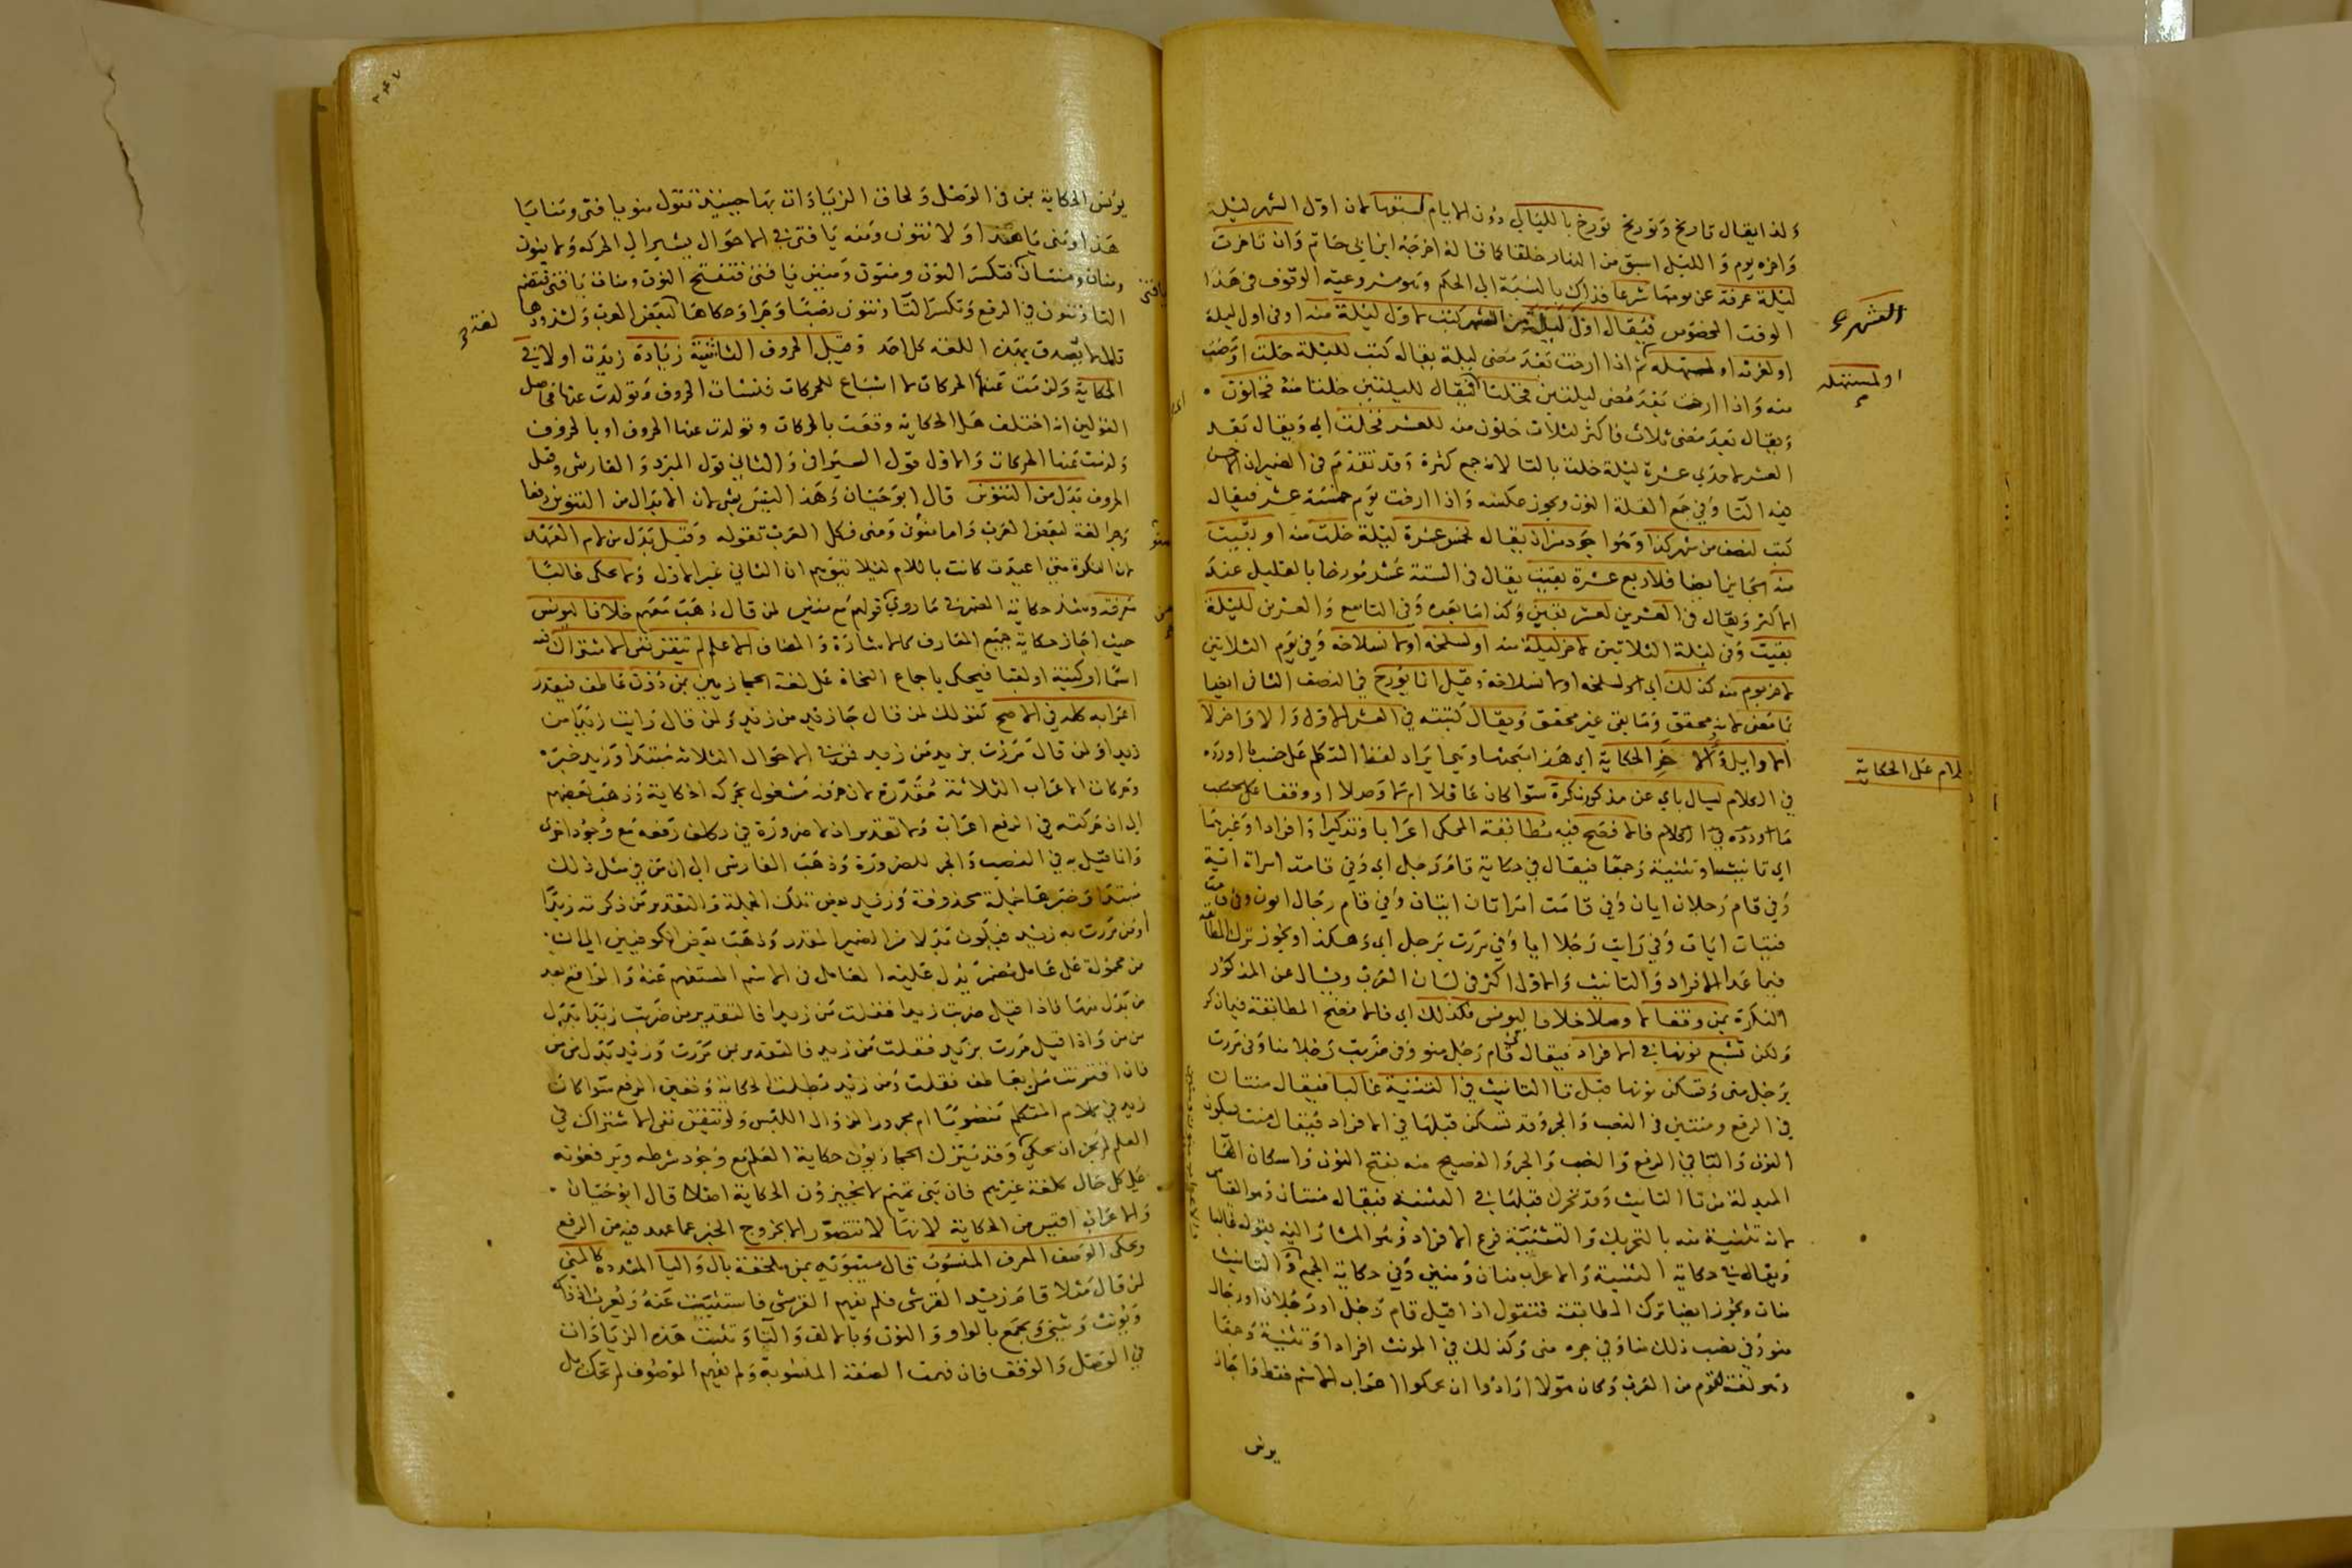 ولذا يقال تاريخ وتوريخ تورخ بالليالي دون الايام لسبقها لان اول الشهر ليلة
واخره يوم والليل اسبق من النهار خلقا كما قاله اخرجه ابن ابي حاتم وان تاخرت
ليلة عرفة عن يومها شرعا فذاك بالنسبة الى الحكم وهو مشروعية الوقوف في هذا
الوقت المخصوص فيقال اول ليلة من الشهر كتب لاول ليلة منه او في اول ليلة
الشهر
او لغرته او لمستهله ثم اذا ارخت بعد مضى ليلة يقال كتب لليلة خلت او مضت
او لمستهله
منه واذا ارخت بعد مضى ليلتين فخلتا فيقال لليلتين خلتا منه فخلون
ويقال بعد مضى ثلاث فاكثر لثلاث خلون منه للعشر فخلت اي ويقال بعد
العشر لاحدي عشرة ليلة خلت بالتا لانه جمع كثرة وقد تقدم في الضمير ان الاحسن
فيه التا وفي جمع القلة النون ويجوز عكسه واذا ارخت يوم خمسة عشر فيقال
كتب لنصف من شهر كذا وهو اجود من ان يقال لخمس عشرة ليلة خلت منه او بقيت
منه ايضا فلاربع عشرة بقيت يقال في الستة عشر مورخا بالقليل عند
الاكثر ويقال في العشرين لعشر بقين وكذا ما بعده وفي التاسع والعشرين لليلة
بقيت وفي ليلة الثلاثين لاخر ليلة منه او لسلخه او لانسلاخه وفي يوم الثلاثين
لاخر يوم منه كذلك اي او لسلخه او لانسلاخه وقيل انما يورخ في النصف الثاني ايضا
بما مضى لانه محقق وما بقي غير محقق ويقال كتبته في العشر الاول والاواخر لا
الاوايل والاخر الحكاية اي هذا مبحثها وهي ايراد لفظ المتكلم على حسب ما اورده
الكلام على الحكاية
في الكلام ليسال باي عن مذكور نكرة سوا كان عاقلا ام لا وصلا او وقفا على حسب
ما اورده في الكلام فالافصح فيه مطابقة المحكي اعرابا وتذكيرا وافرادا وغيرهما
اي تانيثا وتثنية وجمعا فيقال في حكاية قام رجل اي وفي قامت امراة اية
وفي قام رجلان ايان وفي قامت امراتان ايتان وفي قام رجال ايون وفي قامت
فتيات ايات وفي رايت رجلا ايا وفي مررت برجل اي وهكذا ويجوز ترك المطابقة
فيما عدا الافراد والتانيث والاول اكثر في لسان العرب ويسال عن المذكور
النكرة بمن وقفا لا وصلا خلافا ليونس فكذلك اي فالافصح المطابقة فيما ذكر
ولكن تشبع نونها في الافراد فيقال في قام رجل منو وفي ضربت رجلا منا وفي مررت
برجل منى وتسكن نونها قبل تا التانيث في التثنية غالبا فيقال منتان
في الرفع ومنتين في النصب والجر وقد تسكن قبلها في الافراد فيقال منت بسكون
النون والتا في الرفع والنصب والجر والفصيح منه بفتح النون واسكان الها
المبدلة من تا التانيث وقد تحرك قبلها في التثنية فيقال منتان وهو القياس
لانه تثنية منه بالتحريك والتثنية فرع الافراد وهو المشار اليه بقوله غالبا
ويقال في حكاية التثنية والاعراب منان ومنين وفي حكاية الجمع والتانيث
منات ويجوز ايضا ترك المطابقة فتقول اذا قيل قام رجل او رجلان او رجال
منو وفي نصب ذلك منا وفي جره منى وكذلك في المونث افرادا وتثنية وجمعا
وهو لغة لقوم من العرب وكان هولا ارادوا ان يحكوا اعراب الاسم فقط واجاز
يونس
يونس الحكاية بمن في الوصل ولحاق الزيادات بها حينئذ فتقول منو يا فتى ومنا يا
هذا ومنى يا هذا ولا تنون ومنه يا فتى في الاحوال يشير الى الحركة ولا ينون
ومنان ومنتان فتكسر النون ومنون ومنين يا فتى فتفتح النون ومنات يا فتى فتضم
يا فتى
التا وتنون في الرفع وتكسر التا وتنون نصبا وجرا وحكاها لبعض العرب ولشذوذها
لغة
قال لا يصدق بهذه اللغة كل احد وقيل الحروف الثابتة زيادة زيدت اولا في
الحكاية ولزمت عنها الحركات لا اشباع للحركات فنشات الحروف وتولدت عنها فحاصل
القولين انه اختلف هل الحكاية وقعت بالحركات وتولدت عنها الحروف او بالحروف
ولزمت عنها الحركات والاول قول السيرافي والثاني قول المبرد والفارسي وقيل
الحروف بدل من التنوين قال ابو حيان وهذا ليس بشي لان الابدال من التنوين رفعا
وجرا لغة لبعض العرب واما منون ومنى فكل العرب تقوله وقيل بدل من لام العهد
منو
لان النكرة متى اعيدت كانت باللام ليلا يتوهم ان الثاني غير الاول ولا يحكى غالبا
معرفة وشذ حكاية الضمير في ما روي قولهم مع منين لمن قال ذهب معهم خلافا ليونس
حيث اجاز حكاية جميع المعارف كالاشارة والمضاف الا علم لم يتيقن نفي الاشتراك فيه
اسما او كنية او لقبا فيحكى باجماع النحاة على لغة الحجازيين بمن دون عاطف فيقدر
اعرابه كله في الاصح كقولك لمن قال جا زيد من زيد ولمن قال رايت زيدا من
زيدا ولمن قال مررت بزيد من زيد فمن في الاحوال الثلاثة مبتدا وزيد خبره
وحركات الاعراب الثلاثة مقدرة لان حرفه مشغول بحركة الحكاية وذهب بعضهم
الى ان حركته في الرفع اعراب ولا تقدير اذ لا ضرورة في تكلف رفعه مع وجود اخرى
وانما قيل به في النصب والجر للضرورة وذهب الفارسي الى ان من في مثل ذلك
مبتدا وخبرها جملة محذوفة وزيد بعض تلك الجملة والتقدير من ذكرته زيدا
او من مررت به زيد فيكون بدلا من الضمير المقدر وذهب بعض الكوفيين الى ان
من محمولة على عامل مضمر يدل عليه العامل في الاسم المستفهم عنه والواقع بعد
من بدل منها فاذا قيل ضربت زيدا فقلت من زيدا فالتقدير من ضربت زيدا بدل
من من واذا قيل مررت بزيد فقلت من زيد فالتقدير بمن مررت وزيد بدل من من
فان اقترنت من بعاطف فقلت ومن زيد بطلت الحكاية وتعين الرفع سوا كان
زيد في كلام المتكلم منصوبا ام مجرورا لزوال اللبس ولو تيقن نفي الاشتراك في
العلم لم يجز ان يحكى وقد يترك الحجازيون حكاية العلم مع وجود شرطه ويرفعونه
على كل حال كلغة غيرهم فان بني تميم لا يجيزون الحكاية اصلا قال ابو حيان
والاعراب اقيس من الحكاية لانها لا تتصور الا بخروج الخبر عما عهد فيه من الرفع
ويحكى الوصف المعرف المنسوب قال سيبويه بمن ملحقة بال واليا المشددة كالمني
لمن قال مثلا قام زيد القرشي فلم يفهم القرشي فاستثبت عنه ويعرب اذ ذاك
ويونث ويثنى ويجمع بالواو والنون وبالالف والتا وتثبت هذه الزيادات
في الوصل والوقف فان فهمت الصفة المنسوبة ولم يفهم الموصوف لم تحك بل